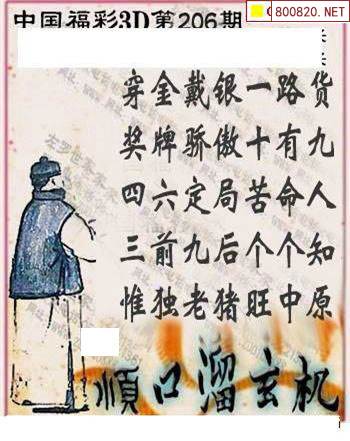 中国福彩3D第206期
800820.NET
穿金戴银一路货
奖牌骄傲十有九
四六定局苦命人
三前九后个个知
惟独老猪旺中原
順口溜玄机